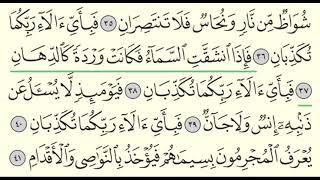 شُوَاظٌ مِّن نَّارٍ وَنُحَاسٌ فَلَا تَنتَصِرَانِ ٣٥ فَبِأَيِّ ءَالَآءِ رَبِّكُمَا
تُكَذِّبَانِ ٣٦ فَإِذَا ٱنشَقَّتِ ٱلسَّمَآءُ فَكَانَتْ وَرْدَةً كَٱلدِّهَانِ
٣٧ فَبِأَيِّ ءَالَآءِ رَبِّكُمَا تُكَذِّبَانِ ٣٨ فَيَوْمَئِذٍ لَّا يُسْـَٔلُ عَن
ذَنۢبِهِۦٓ إِنسٌ وَلَا جَآنٌّ ٣٩ فَبِأَيِّ ءَالَآءِ رَبِّكُمَا تُكَذِّبَانِ ٤٠
يُعْرَفُ ٱلْمُجْرِمُونَ بِسِيمَٰهُمْ فَيُؤْخَذُ بِٱلنَّوَٰصِي وَٱلْأَقْدَامِ ٤١